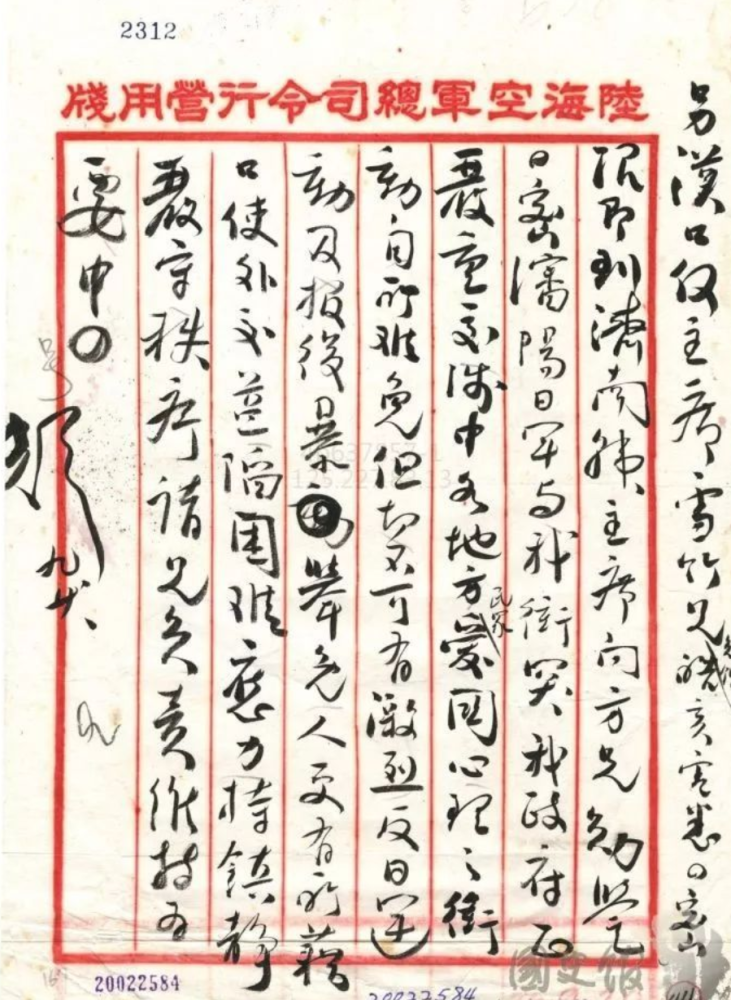 2312
陸海空軍總司令行營用牋
另漢口何主席雪竹兄 亥電悉○密
限即到濟南韓主席向方兄勛鑒
日密瀋陽日军与我衝突我政府正
嚴重交涉中各地方民眾愛國心理之衝
動自所難免但切不可有激烈反日運
動及報復暴舉免人更有所藉
口使外交益陷困難應力持鎮靜
嚴守秩序請兄負責維持為
要中○
号
九廿、
20022584
20022584